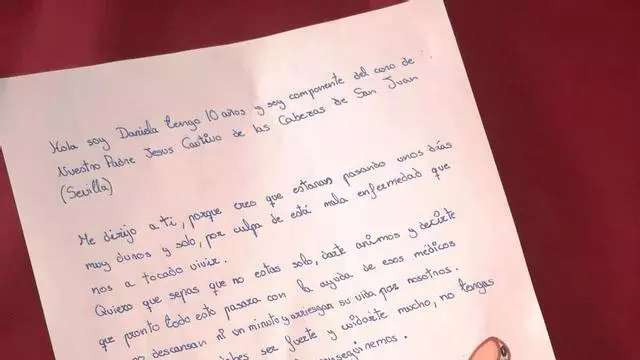 Hola soy Daniela tengo 10 años y soy componente del coro de
Nuestro Padre Jesus Cautivo de las Cabezas de San Juan
(Sevilla)
Me dirijo a ti, porque creo que estaras pasando unos días
muy duros y solo, por culpa de está mala enfermedad que
nos a tocado vivir.
Quiero que sepas que no estas solo, darte animos y decirte
que pronto todo esto pasara con la ayuda de esos médicos
no descansan ni un minuto y arriesgan su vida por nosotros.
debes ser fuerte y cuidarte mucho, no tengas
conseguiremos.